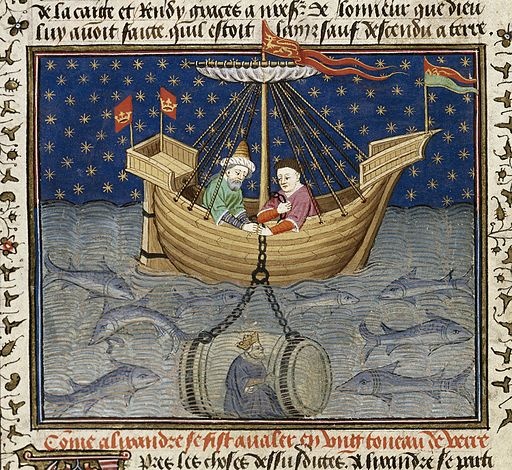 de la caige et Rendy graces a De lonneur que dieu
luy avoit faicte quil estoit sauf descendu a terre
Come alixandre se fist avaler en ung toneau de verre
Pres les choses dessusdictes Alixandre se parti